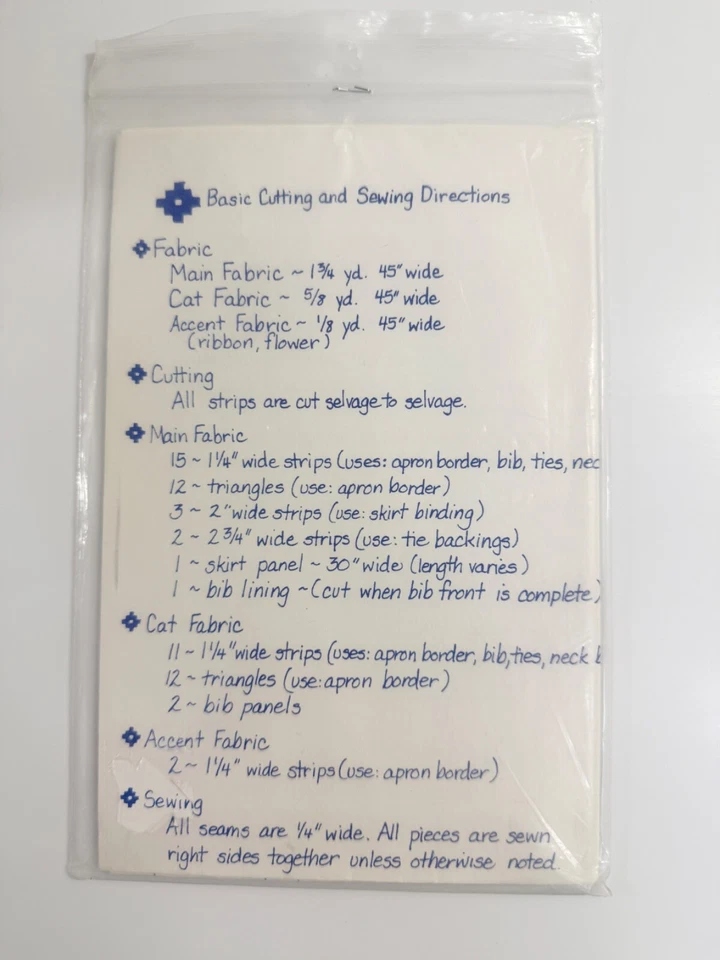 Basic Cutting and Sewing Directions
Fabric
Main Fabric ~ 1 3/4 yd. 45" wide
Cat Fabric ~ 5/8 yd. 45" wide
Accent Fabric ~ 1/8 yd. 45" wide
(ribbon, flower)
Cutting
All strips are cut selvage to selvage.
Main Fabric
15 ~ 1 1/4" wide strips (uses: apron border, bib, ties,
12 ~ triangles (use: apron border)
3 ~ 2" wide strips (use: skirt binding)
2 ~ 2 3/4" wide strips (use: tie backings)
1 ~ skirt panel ~ 30" wide (length varies)
1 ~ bib lining ~ (cut when bib front is complete)
Cat Fabric
11 ~ 1 1/4" wide strips (uses: apron border, bib, ties, neck
12 ~ triangles (use: apron border)
2 ~ bib panels
Accent Fabric
2 ~ 1 1/4" wide strips (use: apron border)
Sewing
All seams are 1/4" wide. All pieces are sewn
right sides together unless otherwise noted.